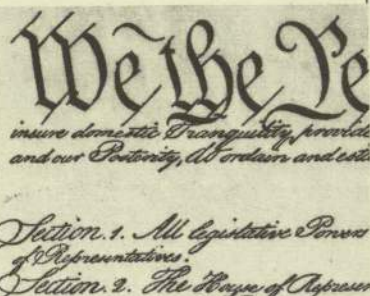 We the Pe
insure domestic Tranquility, provide
and our Posterity, do ordain and esta
Section. 1. All legislative Powers
of Representatives.
Section. 2. The House of Represen